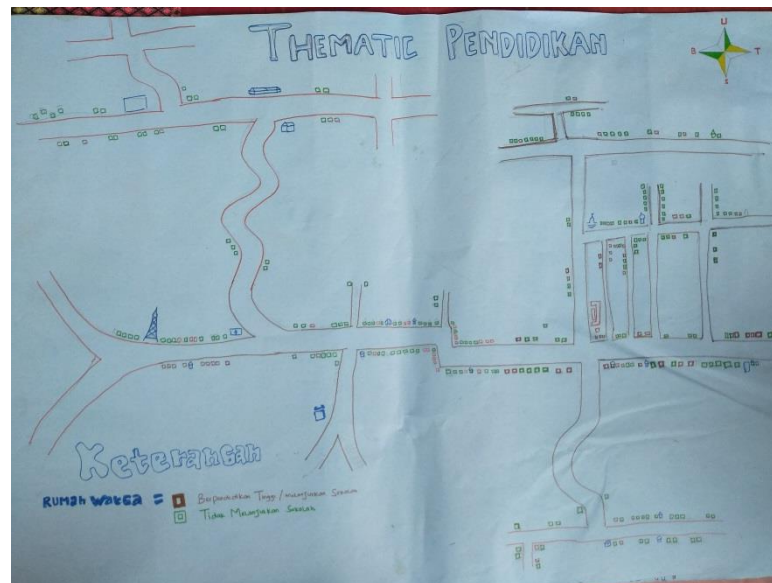 THEMATIC PENDIDIKAN
U
B T
S
Keterangan
RUMAH WARGA = Berpendidikan Tinggi / melanjutkan Sekolah
Tidak Melanjutkan Sekolah